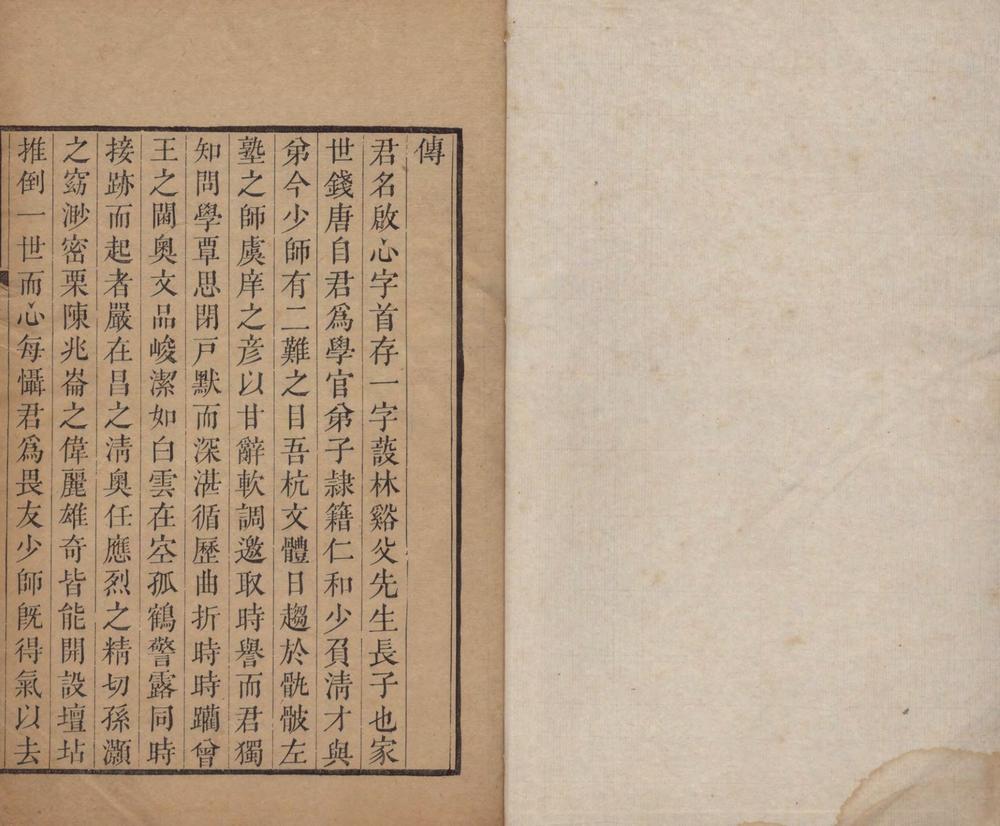 傳
君名啟心字首存一字蔎林谿父先生長子也家
世錢唐自君爲學官弟子隷籍仁和少負清才與
弟今少師有二難之目吾杭文體日趨於骩骳左
塾之師虞庠之彦以甘辭軟調邀取時譽而君獨
知問學覃思閉戸默而深湛循歷曲折時時躪曾
王之閫奧文品峻潔如白雲在空孤鶴警露同時
接跡而起者嚴在昌之淸奧任應烈之精切孫灝
之窈渺密栗陳兆崙之偉麗雄奇皆能開設壇坫
推倒一世而心每懾君爲畏友少師旣得氣以去